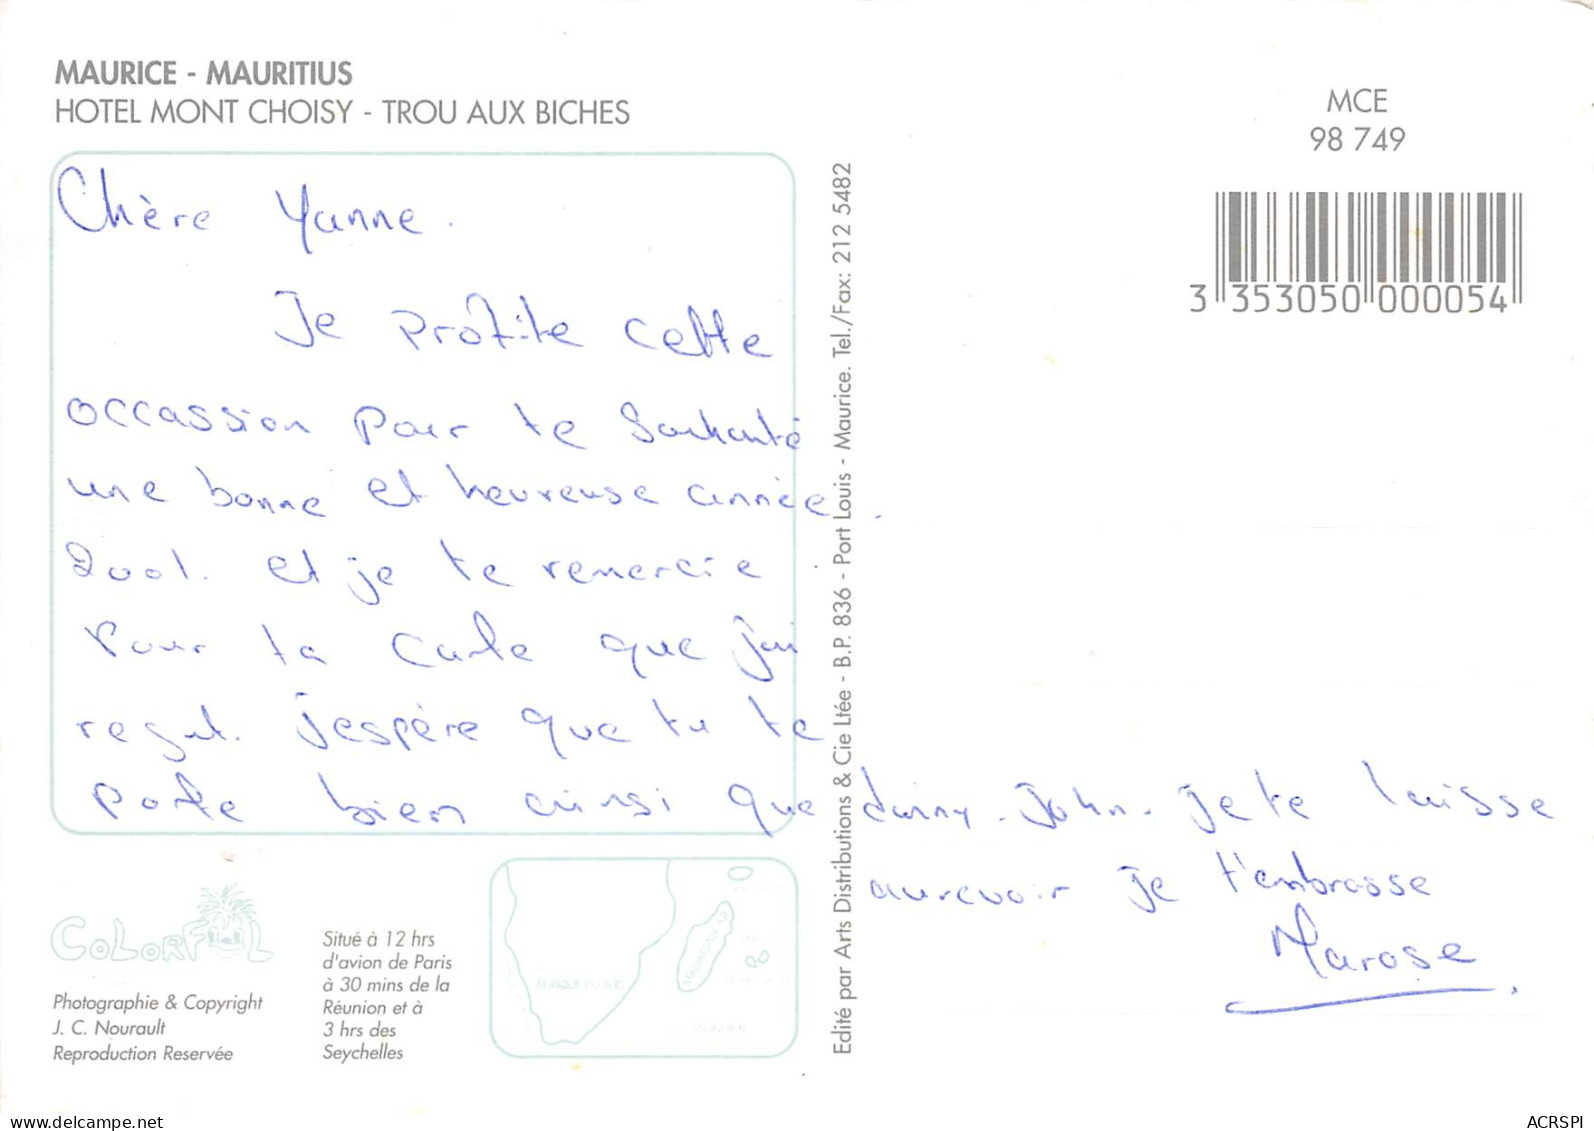 MAURICE - MAURITIUS
HOTEL MONT CHOISY - TROU AUX BICHES
MCE
98 749
3 353050 000054
Chère Yanne.
Je profite cette
occassion pour te souhaité
une bonne et heureuse année
2001. et je te remercie
pour ta carte que j'ai
reçut. j'espère que tu te
porte bien ainsi que danny. John. je te laisse
aurevoir je t'embrasse
Marose
Edité par Arts Distributions & Cie Ltée - B.P. 836 - Port Louis - Maurice. Tel./Fax: 212 5482
COLORFUL
Photographie & Copyright
J. C. Nourault
Reproduction Reservée
Situé à 12 hrs
d'avion de Paris
à 30 mins de la
Réunion et à
3 hrs des
Seychelles
AFRIQUE DU SUD
delcampe.net
ACRSPI